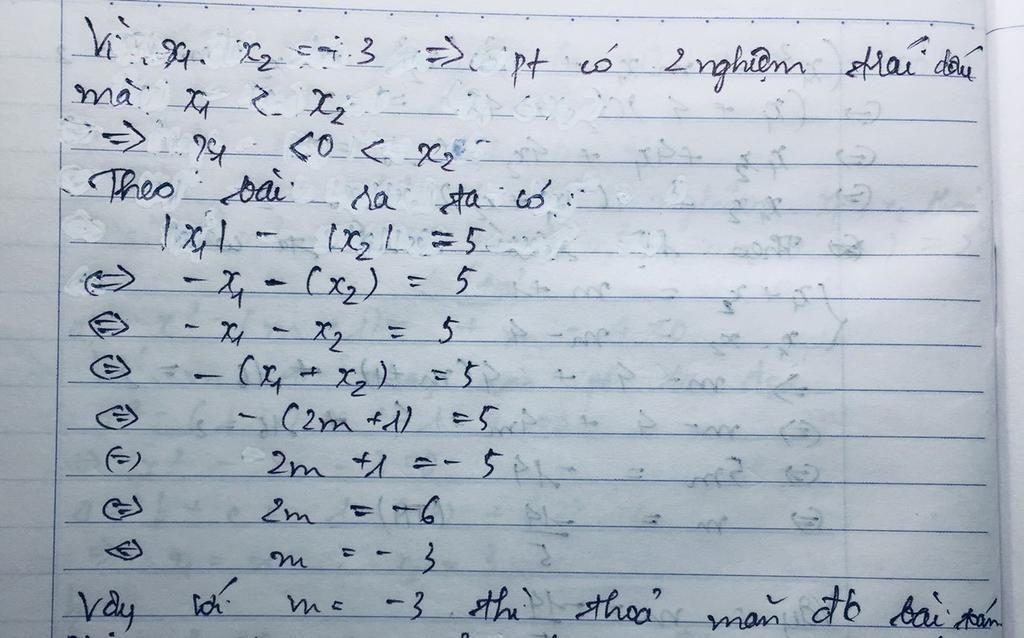 Vì x₁. x₂ = - 3 => pt có 2 nghiệm trái dấu
mà x₁ < x₂
=> x₁ < 0 < x₂
Theo bài ra ta có:
|x₁| - |x₂| = 5
<=> - x₁ - (x₂) = 5
<=> - x₁ - x₂ = 5
<=> - (x₁ + x₂) = 5
<=> - (2m + 1) = 5
(=) 2m + 1 = - 5
<=> 2m = - 6
<=> m = - 3
Vậy với m = - 3 thì thoả mãn đb bài toán